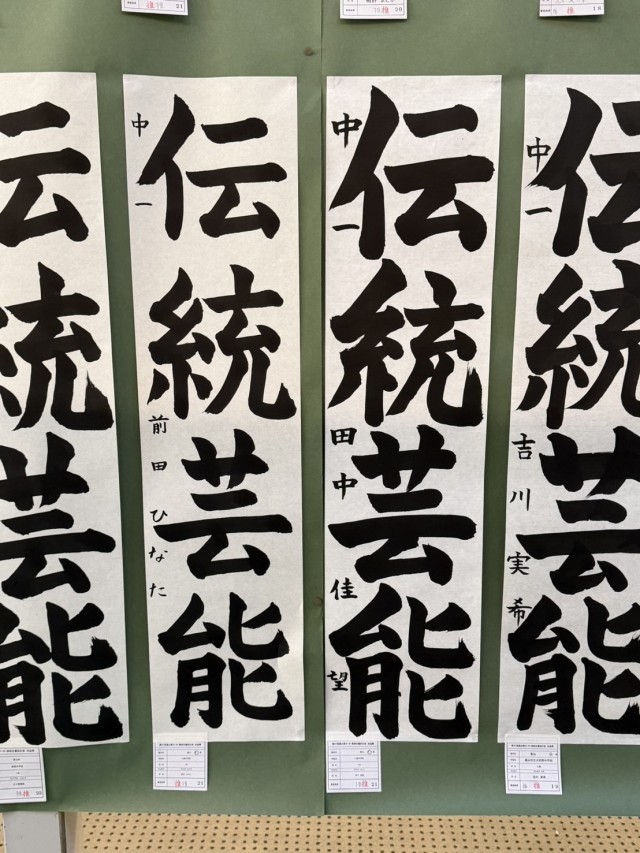 伝統芸能
中一
吉川実希
伝統芸能
中一
田中佳望
伝統芸能
中一
前田ひなた
伝統芸能